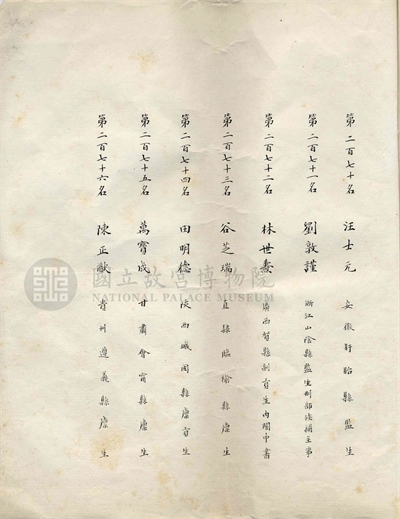 第二百七十名 汪士元 安徽盱眙縣監生
第二百七十一名 劉敦謹 浙江山陰縣監生刑部候補主事
第二百七十二名 林世燾 廣西賀縣副貢生內閣中書
第二百七十三名 谷芝瑞 直隸臨榆縣廩生
第二百七十四名 田明德 陝西城固縣廩貢生
第二百七十五名 萬寶成 甘肅會甯縣廩生
第二百七十六名 陳正猷 貴州遵義縣廩生
國立故宮博物院
NATIONAL PALACE MUSEUM